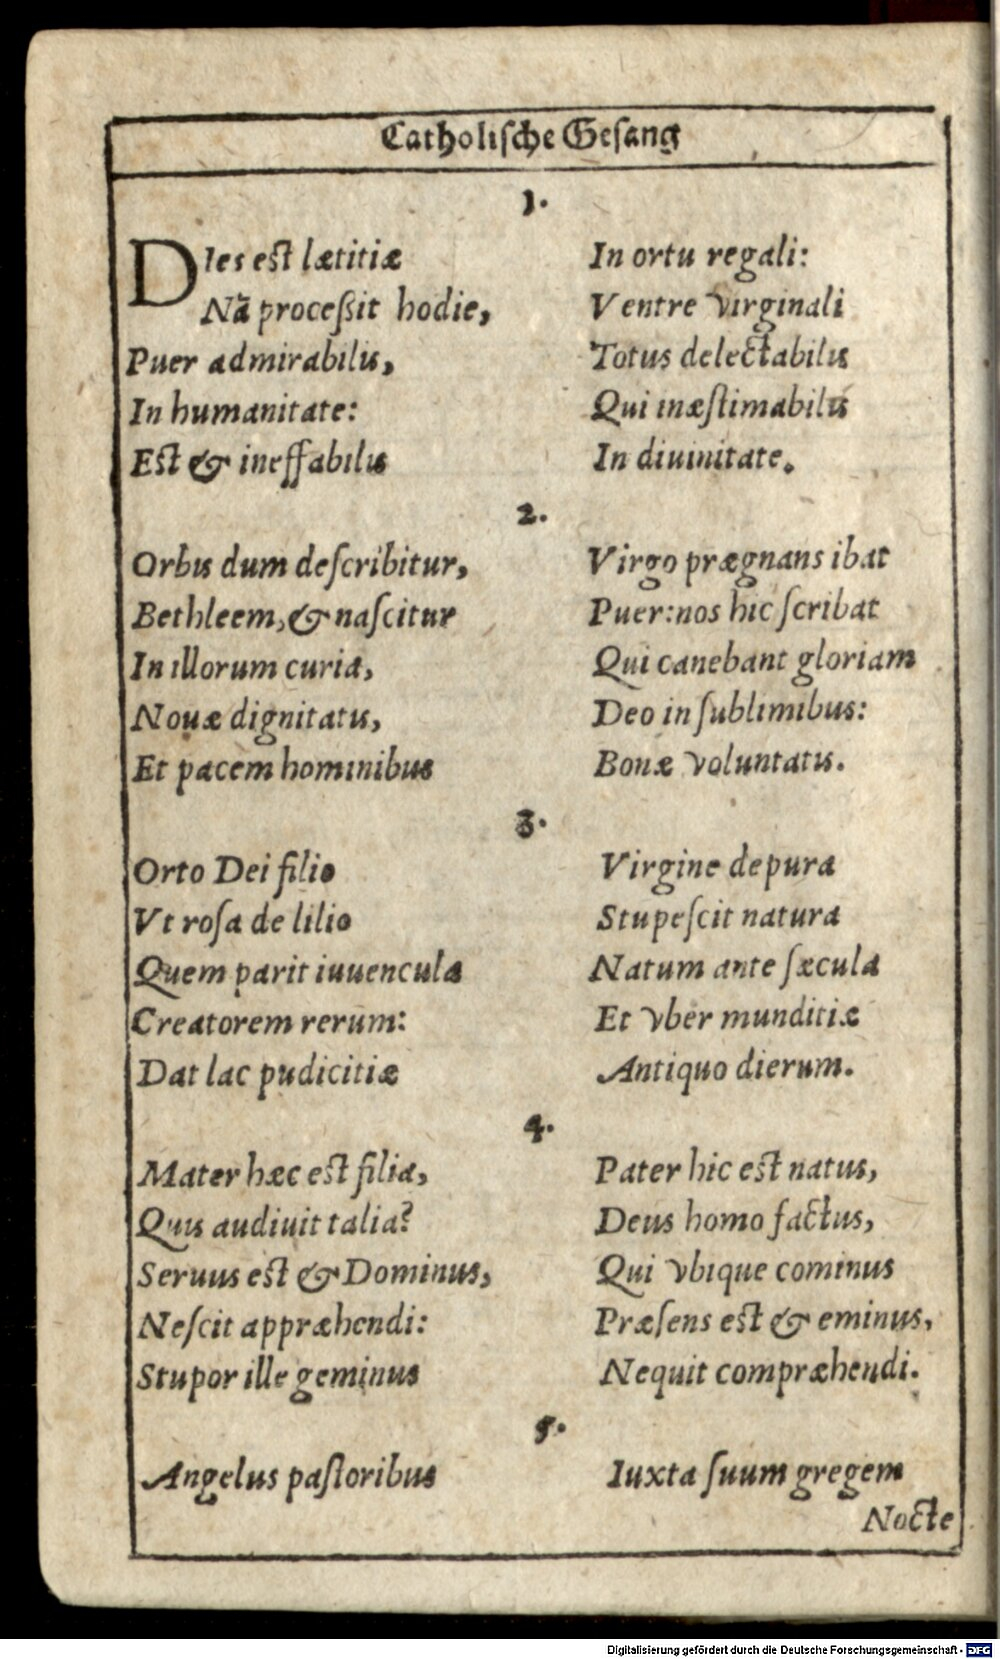 Catholische Gesang
1.
DIes est lætitiæ In ortu regali:
Nã proceßit hodie, Ventre virginali
Puer admirabilis, Totus delectabilis
In humanitate: Qui inæstimabilis
Est & ineffabilis In diuinitate.
2.
Orbis dum describitur, Virgo prægnans ibat
Bethleem, & nascitur Puer: nos hic scribat
In illorum curia, Qui canebant gloriam
Nouæ dignitatis, Deo in sublimibus:
Et pacem hominibus Bonæ voluntatis.
3.
Orto Dei filio Virgine de pura
Vt rosa de lilio Stupescit natura
Quem parit iuuencula Natum ante sæcula
Creatorem rerum: Et vber munditiæ
Dat lac pudicitiæ Antiquo dierum.
4.
Mater hæc est filia, Pater hic est natus,
Quis audiuit talia? Deus homo factus,
Seruus est & Dominus, Qui vbique cominus
Nescit appræhendi: Præsens est & eminus,
Stupor ille geminus Nequit compræhendi.
5.
Angelus pastoribus Iuxta suum gregem
Nocte
Digitalisierung gefördert durch die Deutsche Forschungsgemeinschaft - DFG